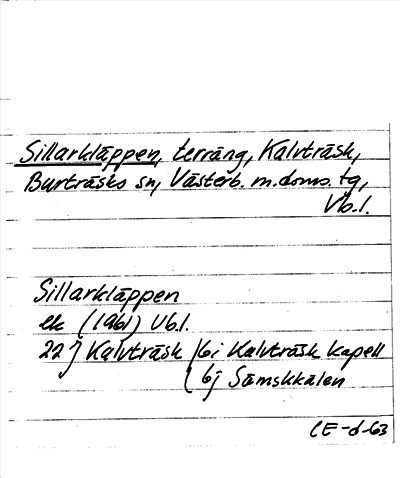 Sillarkläppen, terräng, Kalvträsk,
Burträsks sn, Västerb. m. doms. tg,
Vb. l.
Sillarkläppen
ek (1961) Vb.l.
22 j Kalvträsk bi Kalvträsk kapell
bj Sämskkälen
CE-d-63